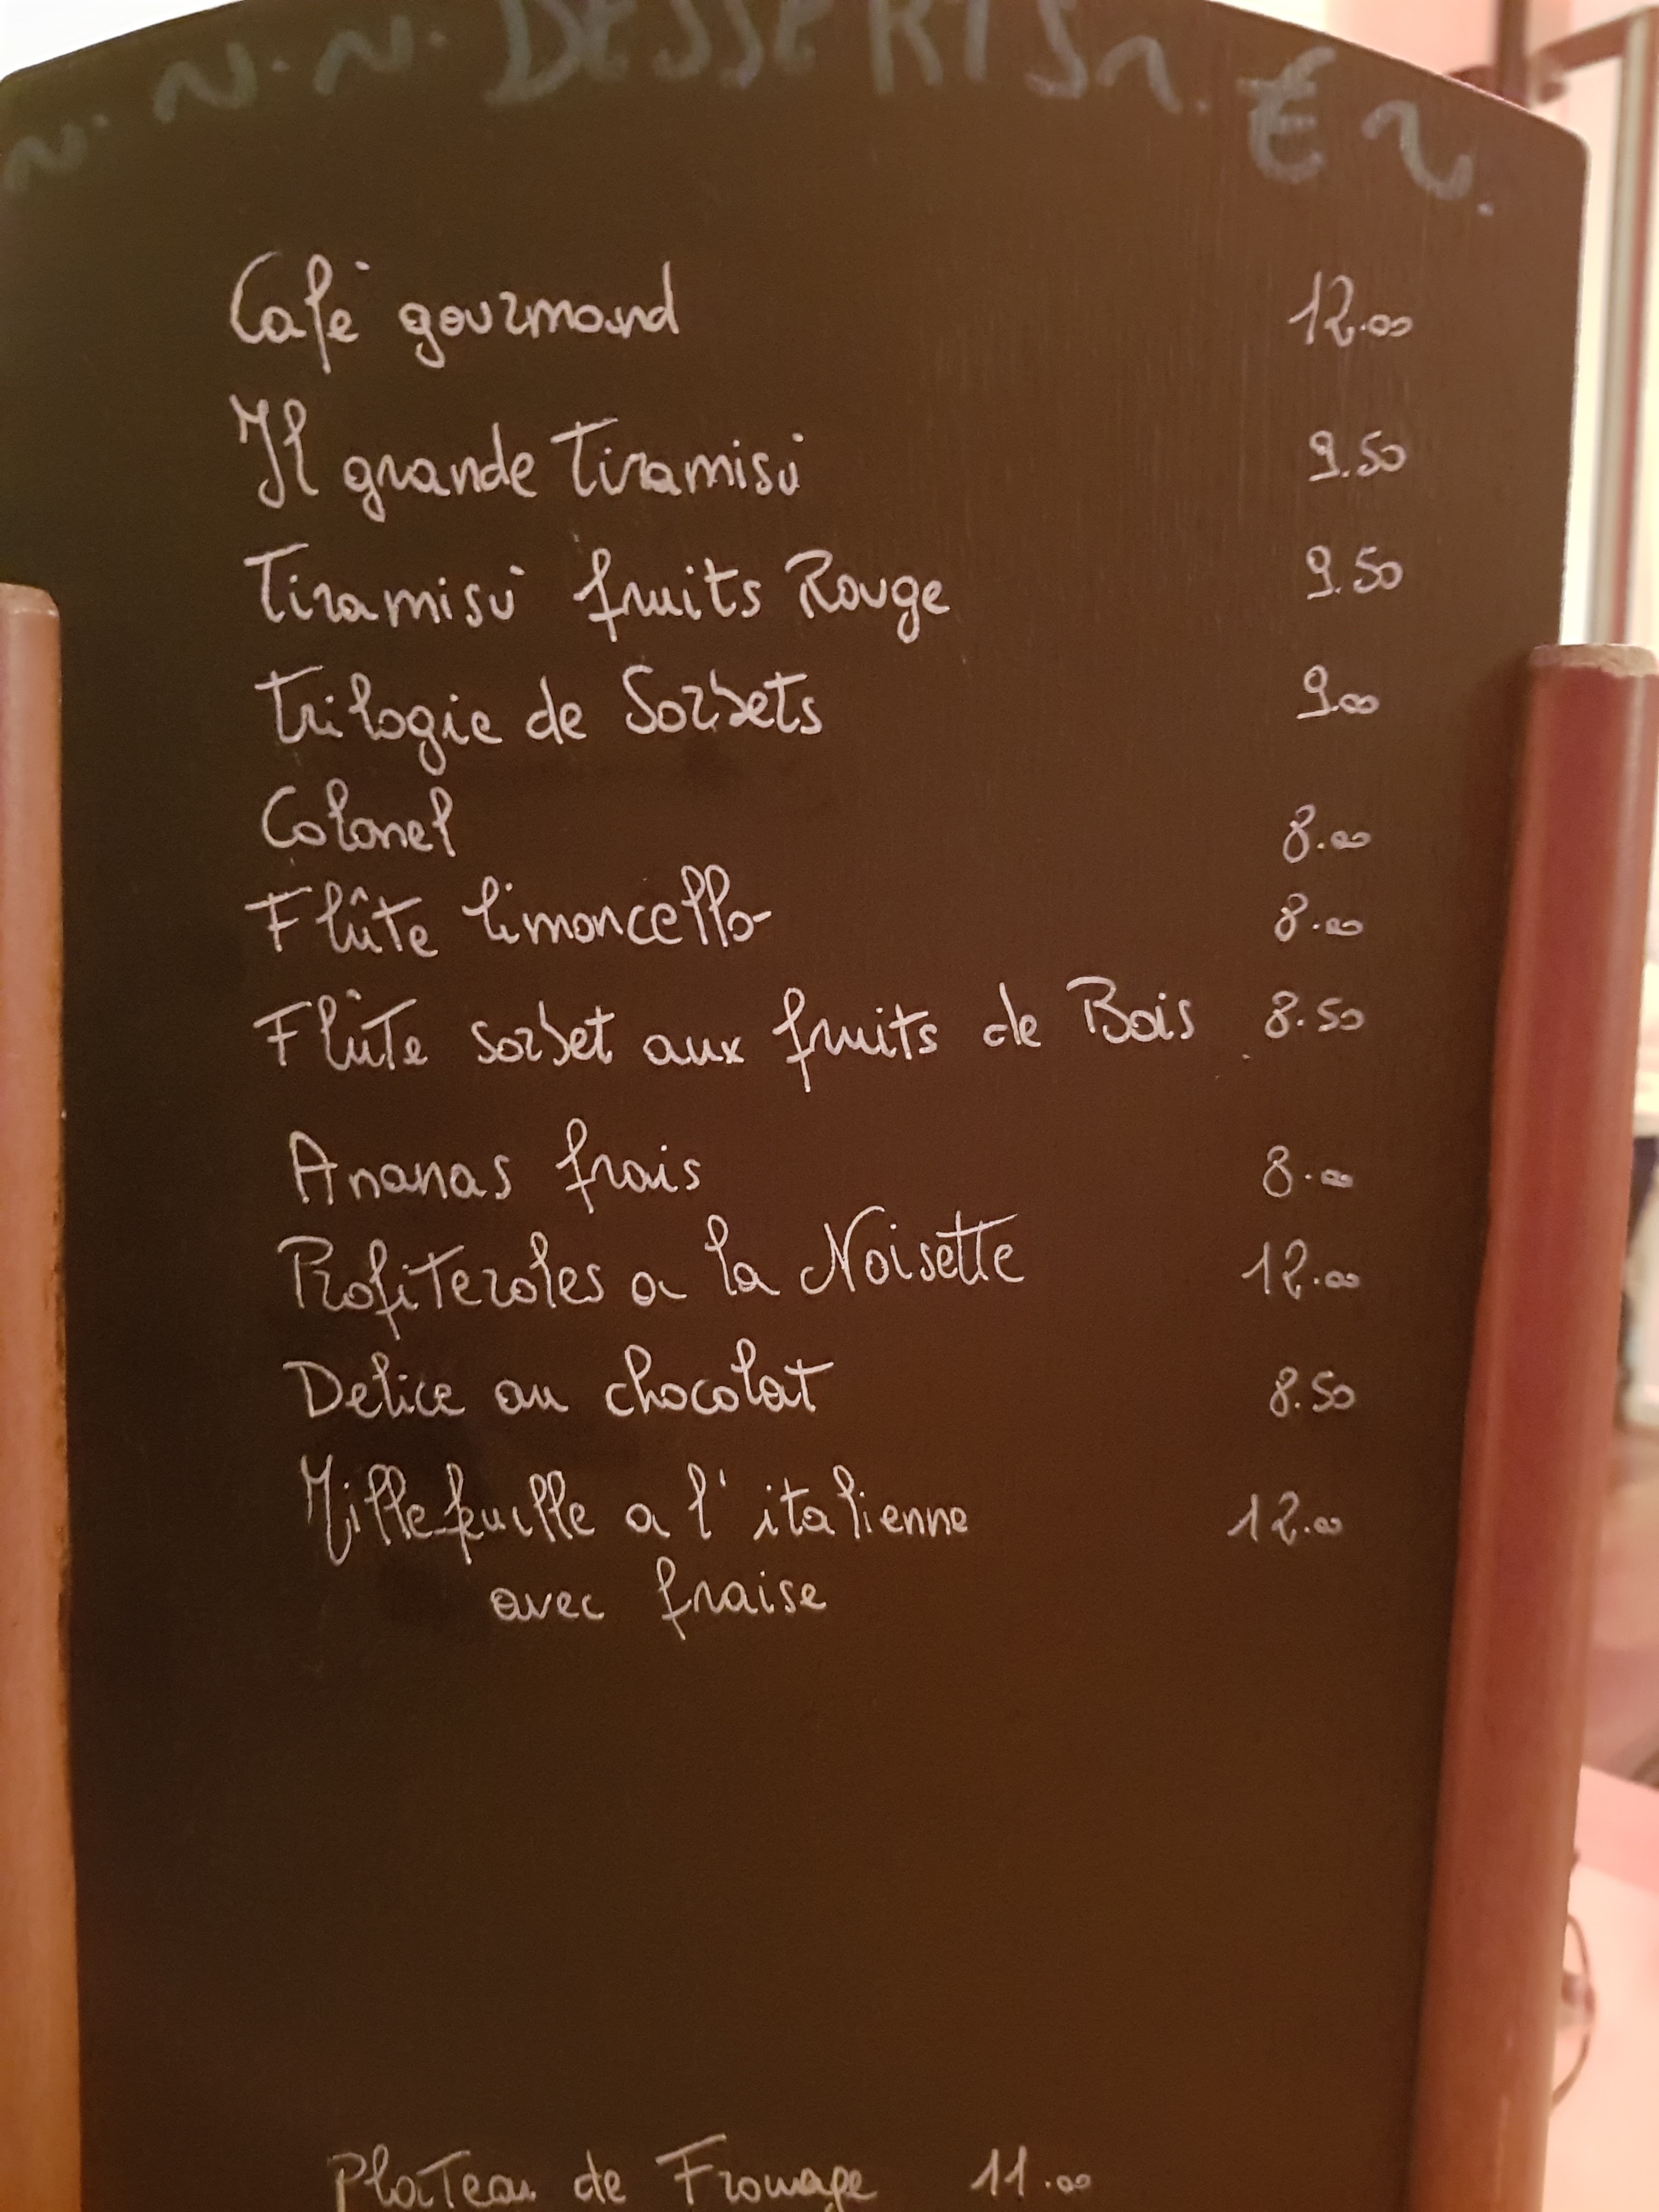 DESSERTS €
Café gourmand 12.00
Il grande Tiramisù 9.50
Tiramisù fruits Rouge 9.50
Trilogie de Sorbets 9.00
Colonel 8.00
Flûte limoncello 8.00
Flûte sorbet aux fruits de Bois 8.50
Ananas frais 8.00
Profiteroles a la Noisette 12.00
Delice au chocolat 8.50
Millefeuille a l'italienne 12.00
avec fraise
Plateau de Fromage 11.00